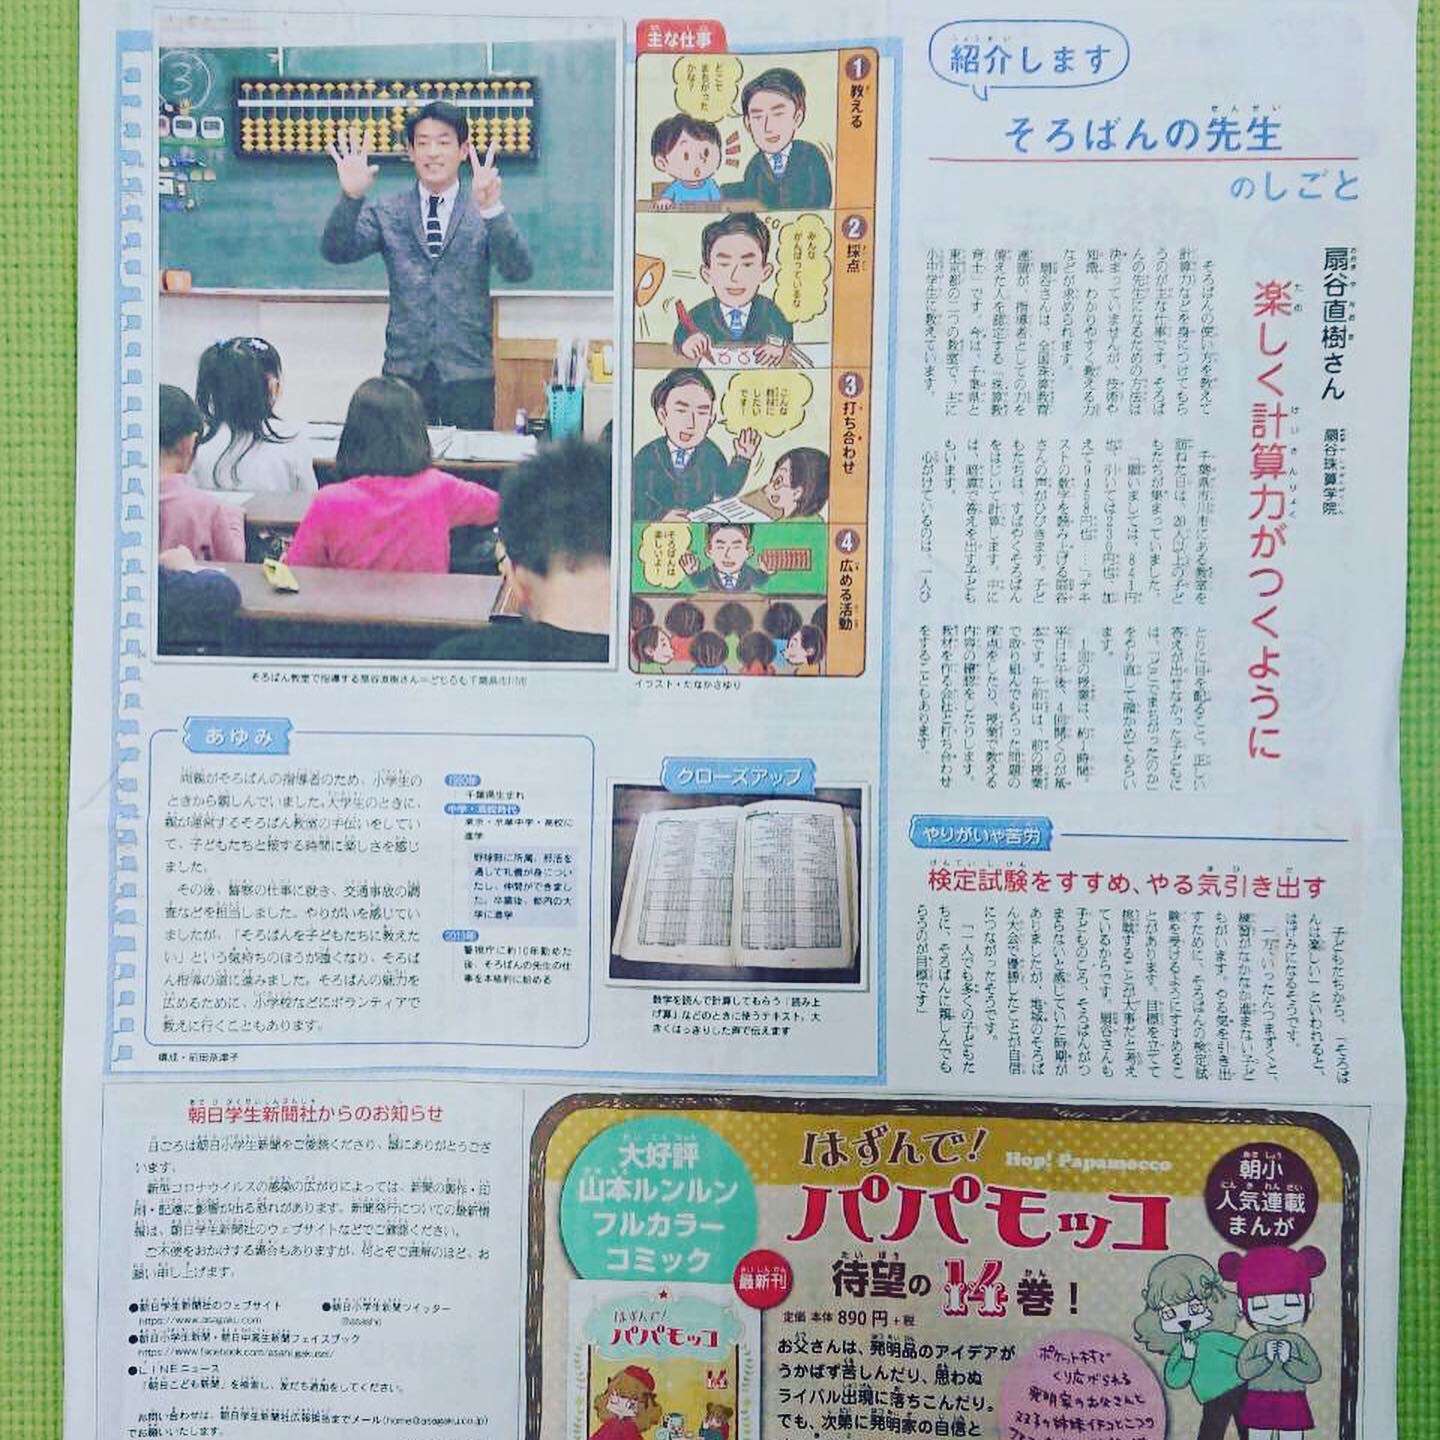 紹介します
そろばんの先生
のしごと
扇谷直樹さん
扇谷珠算学院
楽しく計算力がつくように
そろばんの使い方を教えて
計算力などを身につけてもら
うのが主な仕事です。そろば
んの先生になるための方法は
決まっていませんが、技術や
知識、わかりやすく教える力
などが求められます。
扇谷さんは、全国珠算教育
連盟が、指導者としての力を
備えた人を認定する「珠算教
育士」です。今は、千葉県と
東京都の二つの教室で、主に
小中学生に教えています。
千葉県市川市にある教室を
訪ねた日は、20人以上の子ど
もたちが集まっていました。
「願いましては、841円
也、引いては230円也、加
えて9458円也……」。テキ
ストの数字を読み上げる扇谷
さんの声がひびきます。子ど
もたちは、すばやくそろばん
をはじいて計算します。中に
は、暗算で答えを出す子ども
もいます。
心がけているのは、一人ひ
とりに目を配ること。正しい
答えが出せなかった子どもに
は、「どこでまちがったのか」
をやり直して確かめてもらい
ます。
1回の授業は、約1時間。
平日は午後、4回開くのが基
本です。午前中は、前の授業
で取り組んでもらった問題の
採点をしたり、授業で教える
内容の確認をしたりします。
教材を作る会社と打ち合わせ
をすることもあります。
やりがいや苦労
検定試験をすすめ、やる気引き出す
子どもたちから、「そろば
んは楽しい」といわれると、
はげみになるそうです。
一方、いったんつまずくと、
練習がなかなか進まない子ど
もがいます。やる気を引き出
すために、そろばんの検定試
験を受けるようにすすめるこ
とがあります。目標を立てて
挑戦することが大事だと考え
ているからです。扇谷さんも
子どものころ、そろばんがつ
まらないと感じていた時期が
ありましたが、地域のそろば
ん大会で優勝したことが自信
につながったそうです。
「一人でも多くの子どもた
ちに、そろばんに親しんでも
らうのが目標です」
主な仕事
1 教える
どこで
まちがった
かな?
2 採点
みんな
がんばっているな
3 打ち合わせ
こんな
教材に
したい
です!
4 広める活動
そろばんは
楽しいよ!
イラスト・たなかさゆり
③
そろばん教室で指導する扇谷直樹さん=どちらも千葉県市川市
あゆみ
両親がそろばんの指導者のため、小学生の
ときから親しんでいました。大学生のときに、
親が運営するそろばん教室の手伝いをしてい
て、子どもたちと接する時間に楽しさを感じ
ました。
その後、警察の仕事に就き、交通事故の調
査などを担当しました。やりがいを感じてい
ましたが、「そろばんを子どもたちに教えた
い」という気持ちのほうが強くなり、そろば
ん指導の道に進みました。そろばんの魅力を
広めるために、小学校などにボランティアで
教えに行くこともあります。
千葉県生まれ
中学・高校時代
東京・京華中学・高校に
進学
野球部に所属。部活を
通して礼儀が身につい
たし、仲間ができまし
た。卒業後、都内の大
学に進学
警視庁に約10年勤めた
後、そろばんの先生の仕
事を本格的に始める
構成・前田奈津子
クローズアップ
数字を読んで計算してもらう「読み上
げ算」などのときに使うテキスト。大
きくはっきりした声で伝えます
朝日学生新聞社からのお知らせ
日ごろは朝日小学生新聞をご愛読くださり、誠にありがとうござ
います。
新型コロナウイルスの感染の広がりによっては、新聞の製作・印
刷・配達に影響が出る恐れがあります。新聞発行についての最新情
報は、朝日学生新聞社のウェブサイトなどでご確認ください。
ご不便をおかけする場合もありますが、何とぞご理解のほど、お
願い申し上げます。
●朝日学生新聞社のウェブサイト
https://www.asagaku.com
●朝日小学生新聞ツイッター
@asasho
●朝日小学生新聞・朝日中高生新聞フェイスブック
https://www.facebook.com/asahi.gakusei/
●LINEニュース
「朝日こども新聞」を検索し、友だち追加をしてください。
お問い合わせは、朝日学生新聞社広報担当までメール(home@asagaku.co.jp)
でお願いいたします。
大好評
山本ルンルン
フルカラー
コミック
はずんで!
Hop! Papamocco
パパモッコ
朝小
人気連載
まんが
最新刊
待望の14巻!
定価 本体 890円+税
お父さんは、発明品のアイデアが
うかばず苦しんだり、思わぬ
ライバル出現に落ちこんだり。
でも、次第に発明家の自信と
はずんで!
パパモッコ
14
ポケット村で
くり広げられる
発明家のお父さんと